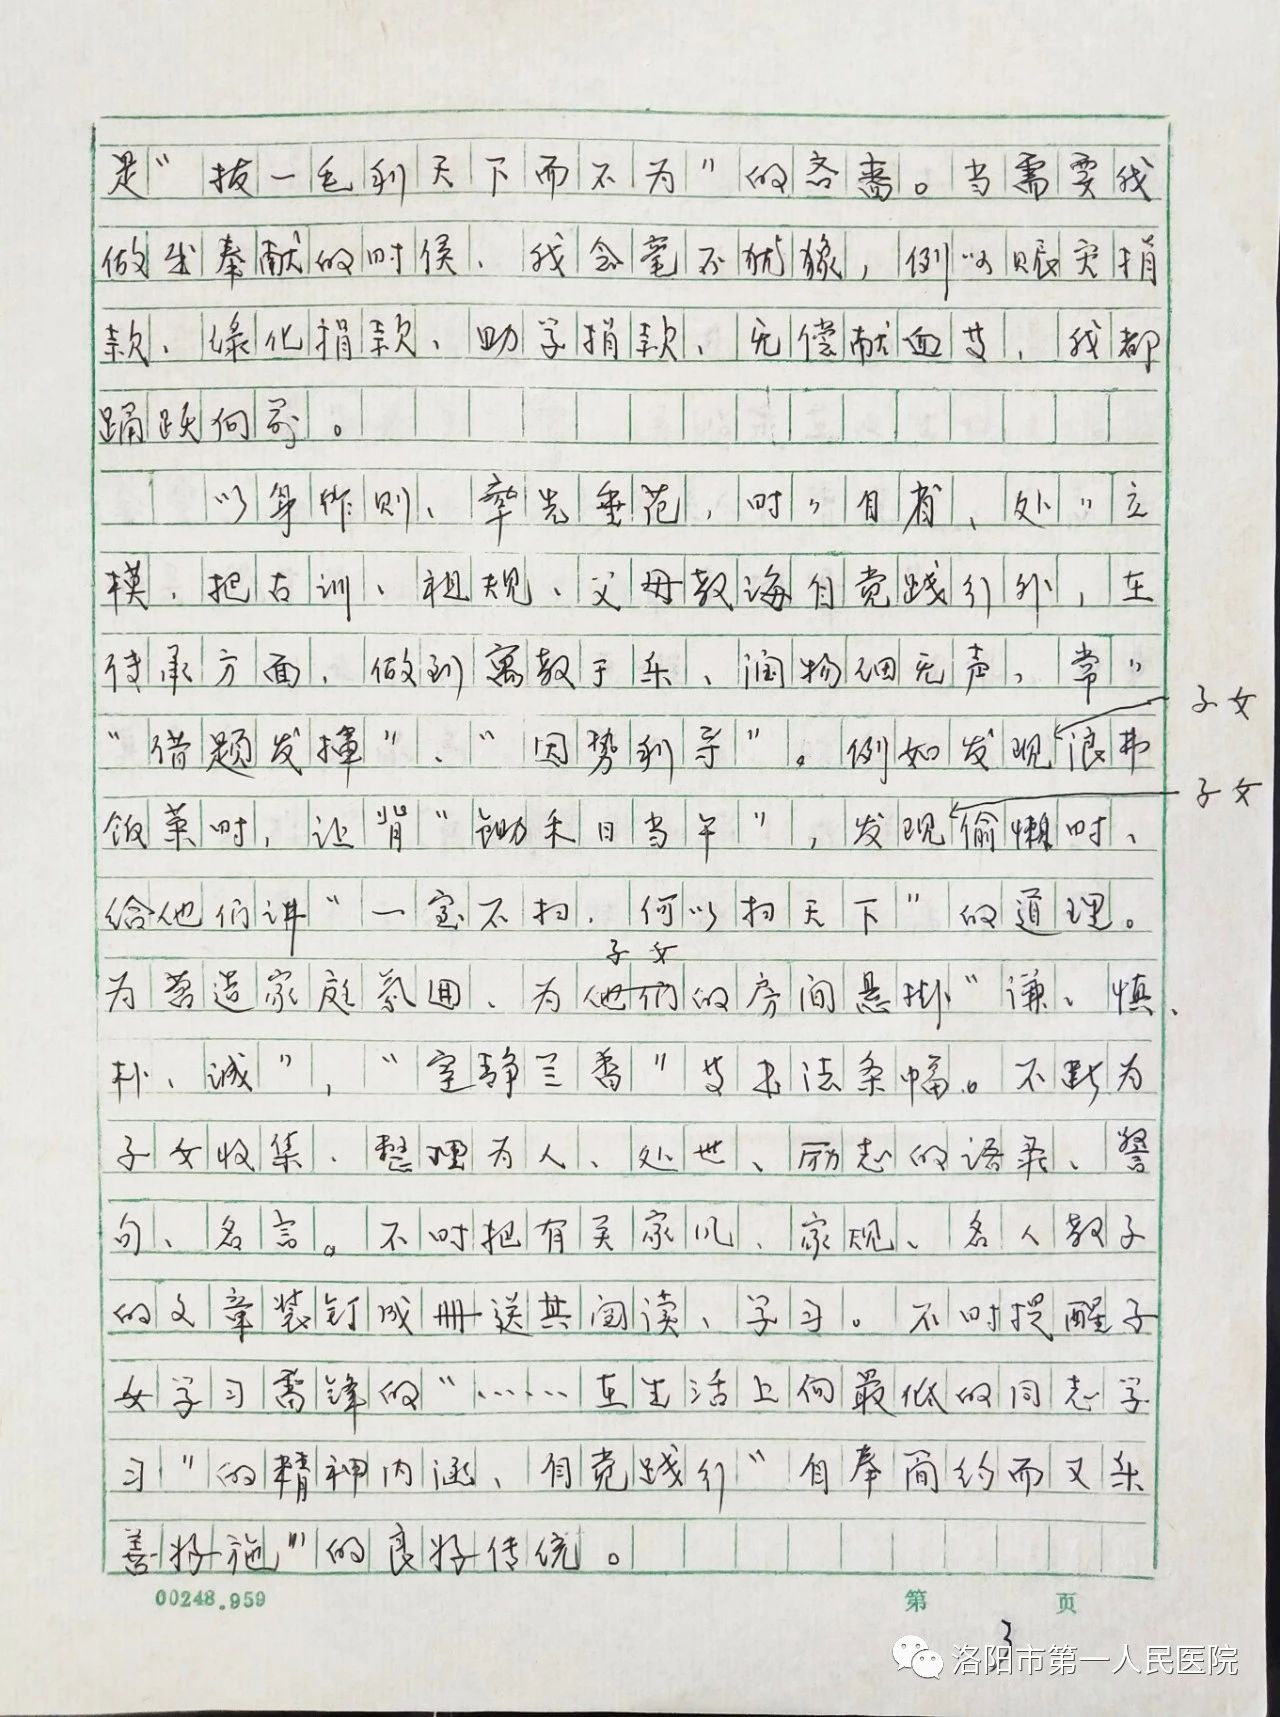 是“拔一毛利天下而不为”的吝啬。当需要我
做出奉献的时候、我会毫不犹豫，例如赈灾捐
款、绿化捐款、助学捐款、无偿献血等，我都
踊跃向前。
以身作则、率先垂范，时〃自省、处〃立
模，把古训、祖规、父母教诲自觉践行外，在
传承方面，做到寓教于乐、润物细无声，常〃
“借题发挥”、“因势利导”。例如发现浪费
子女
饭菜时，让背“锄禾日当午”，发现偷懒时、
子女
给他们讲“一室不扫，何以扫天下”的道理。
子女
为营造家庭氛围、为他们的房间悬挂“谦、慎、
朴、诚”，“室静兰香”等书法条幅。不断为
子女收集、整理为人、处世、励志的语录、警
句、名言。不时把有关家风、家规、名人教子
的文章装钉成册送其阅读、学习。不时提醒子
女学习雷锋的“……在生活上向最低的同志学
习”的精神内涵、自觉践行“自奉简约而又乐
善好施”的良好传统。
00248.959
第 页
3
洛阳市第一人民医院